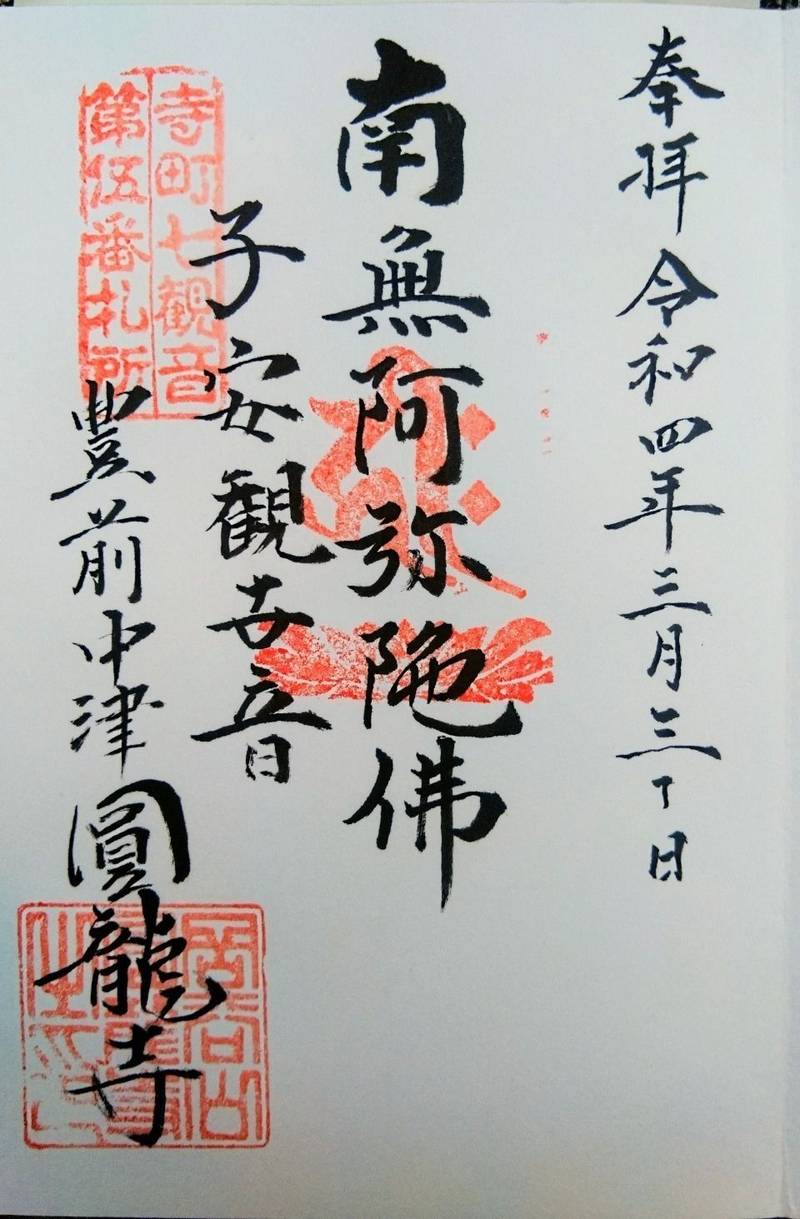 奉拝 令和四年三月三十日
南無阿弥陀佛
子安観世音
寺町七観音
第伍番札所
豊前中津 圓龍寺